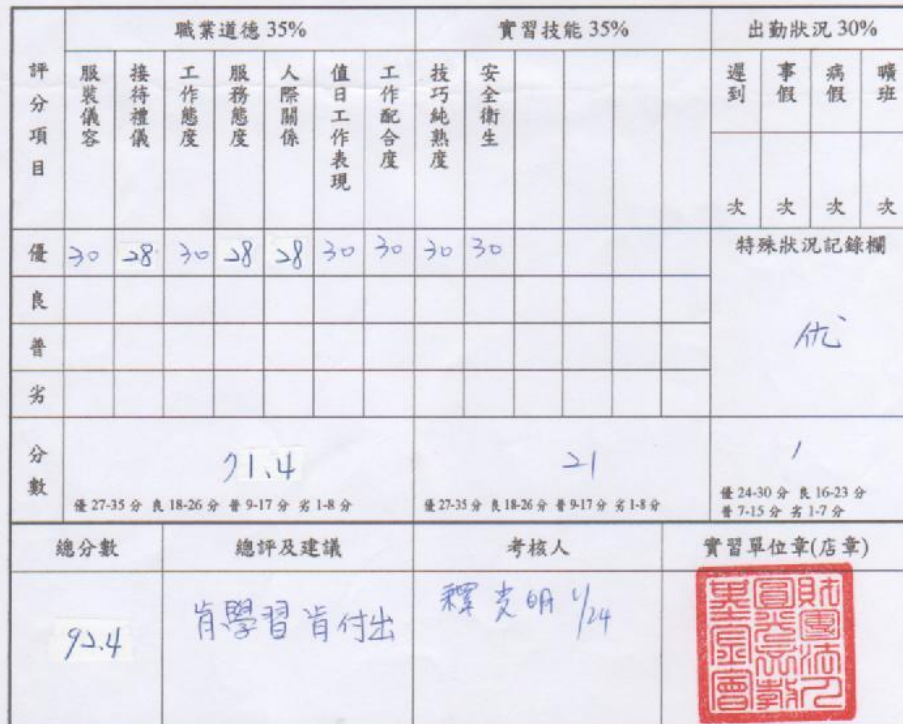 職業道德 35% 實習技能 35% 出勤狀況 30%
評分項目 服裝儀容 接待禮儀 工作態度 服務態度 人際關係 值日工作表現 工作配合度 技巧純熟度 安全衛生 遲到 事假 病假 曠班
次 次 次 次
優 30 28 30 28 28 30 30 30 30 特殊狀況記錄欄
良
普 优
劣
分數 71.4 21 /
優 27-35 分 良 18-26 分 普 9-17 分 劣 1-8 分 優 27-35 分 良 18-26 分 普 9-17 分 劣 1-8 分 優 24-30 分 良 16-23 分
普 7-15 分 劣 1-7 分
總分數 總評及建議 考核人 實習單位章(店章)
92.4 肯學習肯付出 釋光明 1/24
財團法人
圓光宗教
基金會